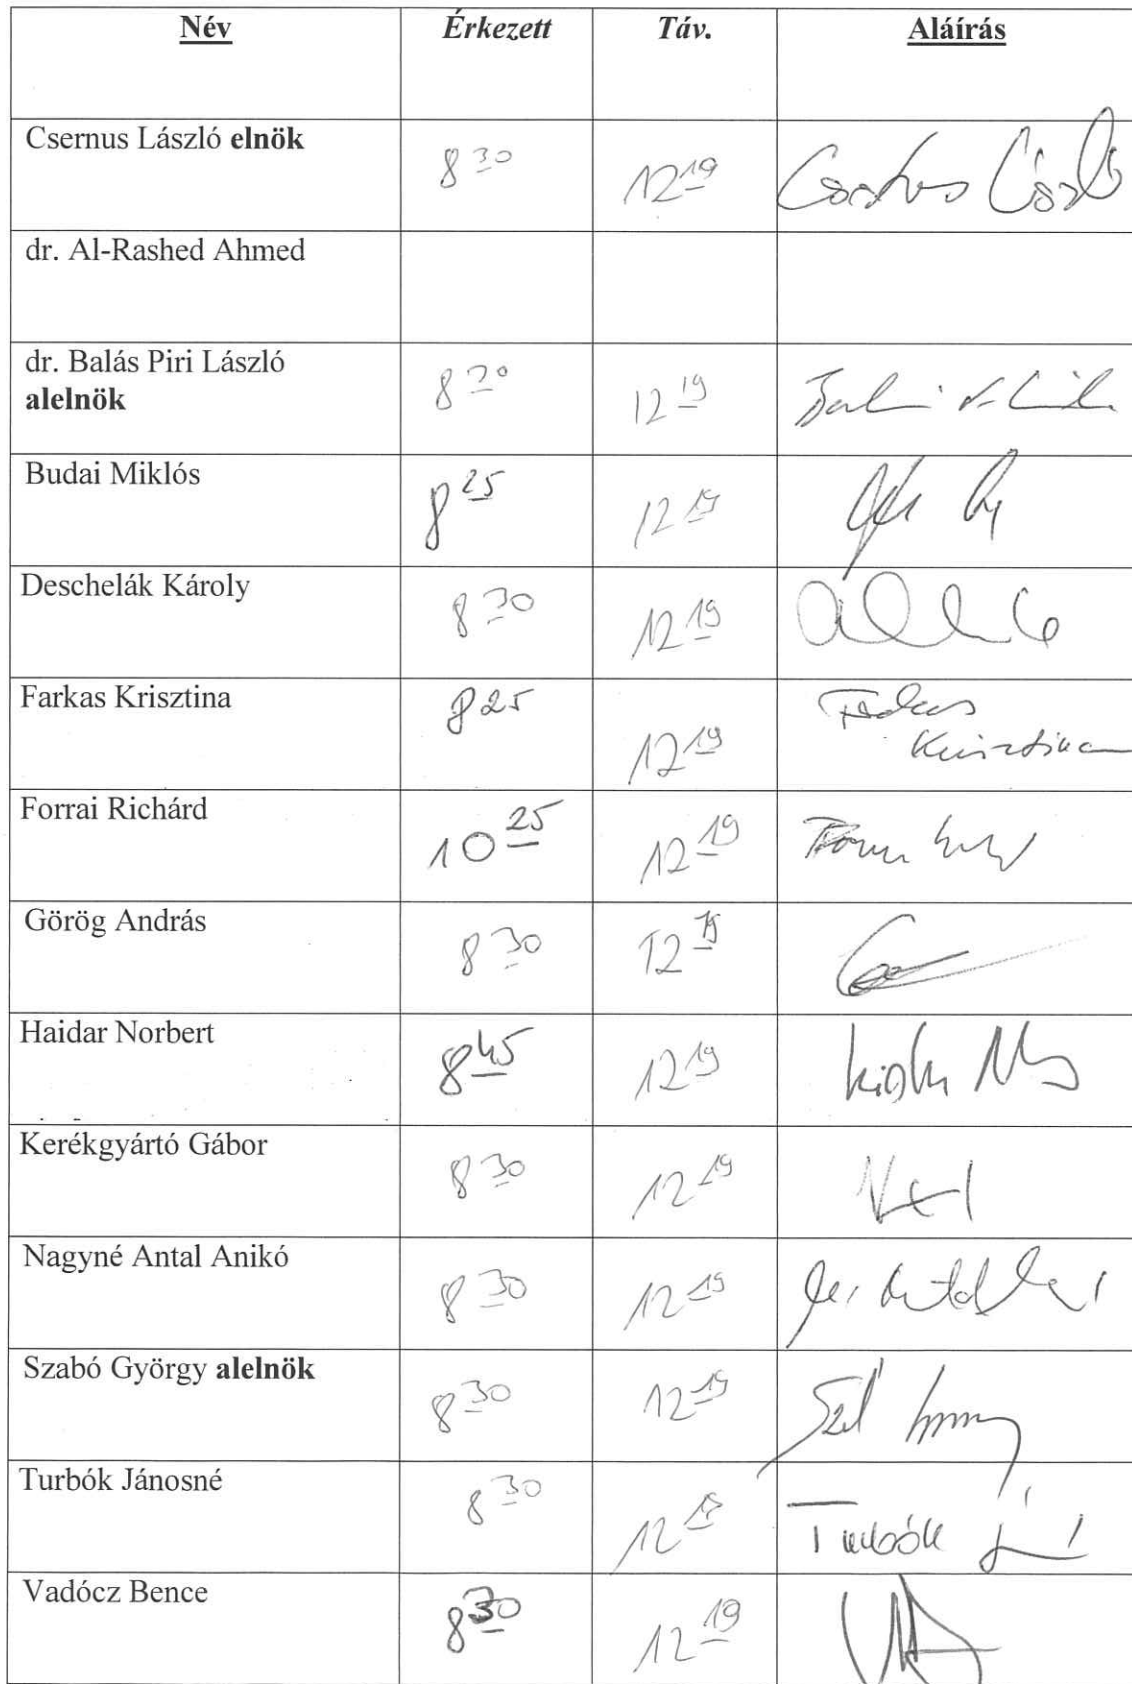 Név Érkezett Táv. Aláírás
Csernus László elnök 8 30 12 19 Csernus László
dr. Al-Rashed Ahmed
dr. Balás Piri László
alelnök 8 30 12 19
Budai Miklós 8 25 12 19
Deschelák Károly 8 30 12 19
Farkas Krisztina 8 25 12 19 Farkas
Krisztina
Forrai Richárd 10 25 12 19
Görög András 8 30 12 19
Haidar Norbert 8 45 12 19
Kerékgyártó Gábor 8 30 12 19
Nagyné Antal Anikó 8 30 12 19
Szabó György alelnök 8 30 12 19
Turbók Jánosné 8 30 12 19 Turbók
Vadócz Bence 8 30 12 19